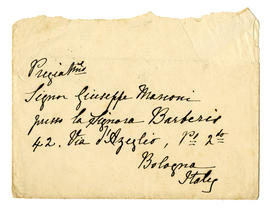 Pregiatmo
Signor Giuseppe Marconi
presso la Signora Barberis
42. Via d'Azeglio, Po 2do
Bologna
Italy